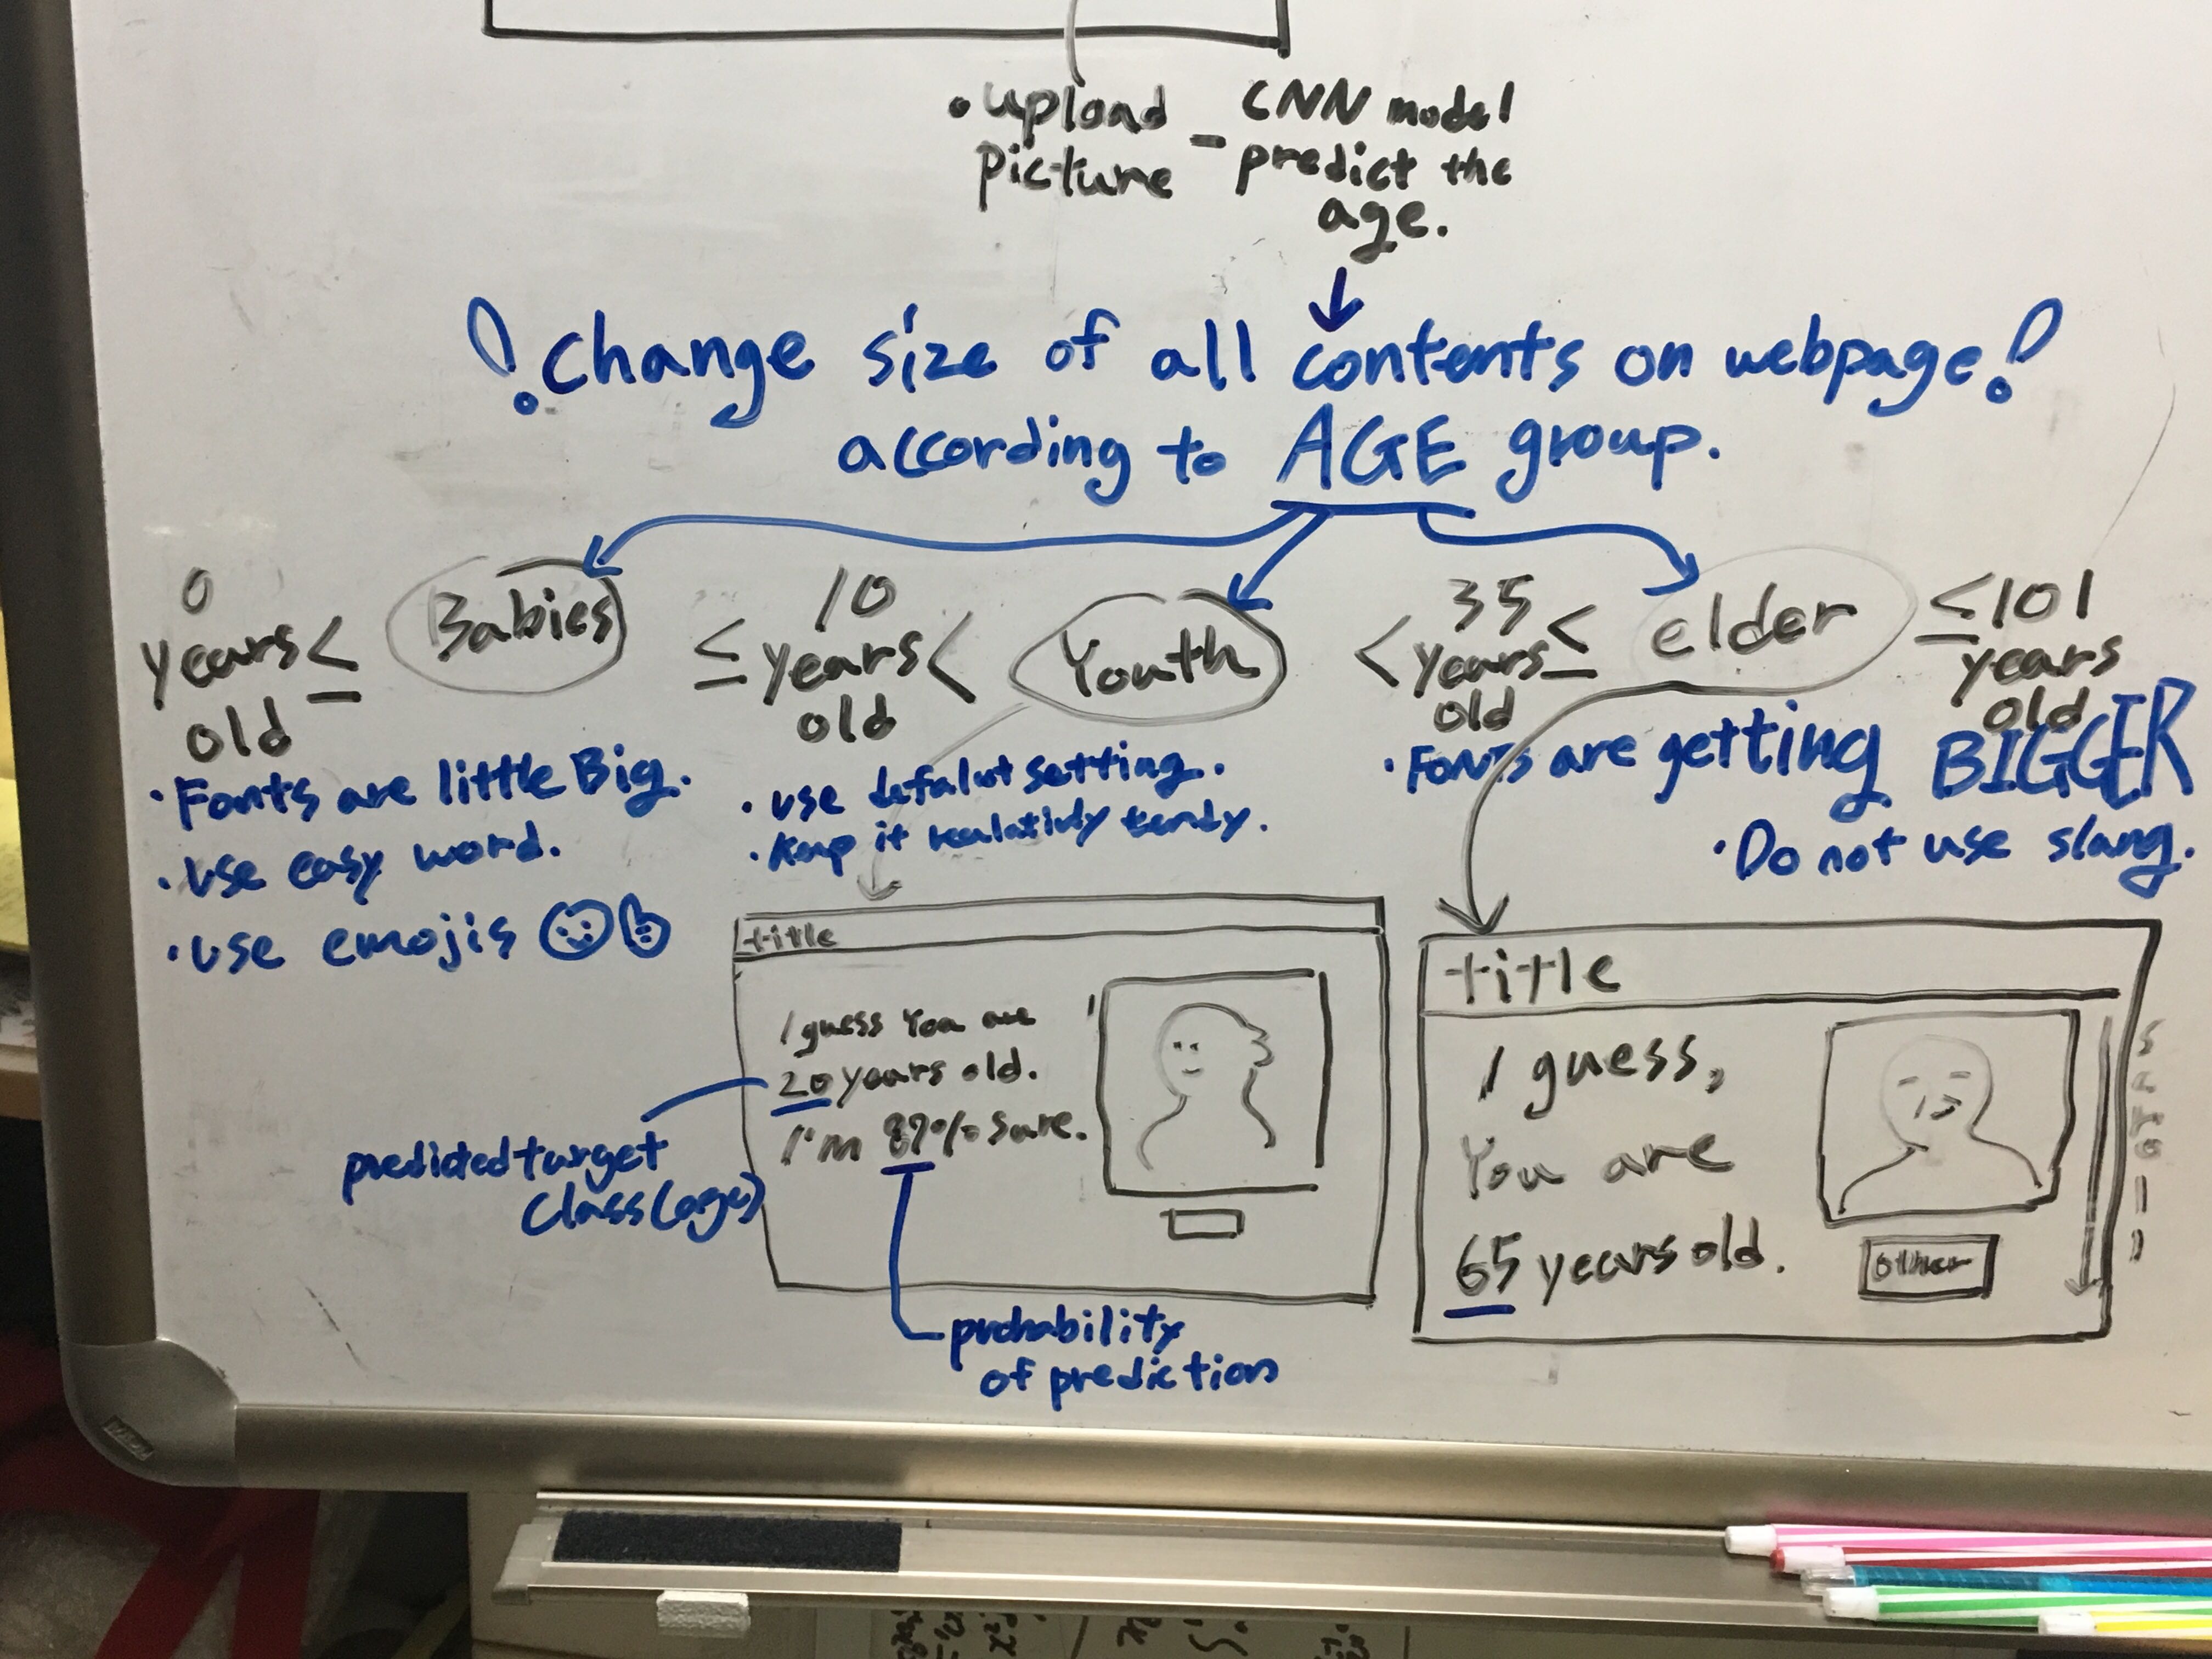 • upload - CNN model
picture predict the
age.
! change size of all contents on webpage!
according to AGE group.
0 years old ≤ Babies ≤ 10 years old < Youth < 35 years old ≤ elder ≤ 101 years old
• Fonts are little Big.
• Use easy word.
• Use emojis
• use defalut setting.
• Keep it realativly tendy.
• Fonts are getting BIGGER
• Do not use slang.
title
I guess You are
20 years old.
I'm 87% sure.
predicted target
class(age)
probability
of prediction
title
I guess,
You are
65 years old.
other